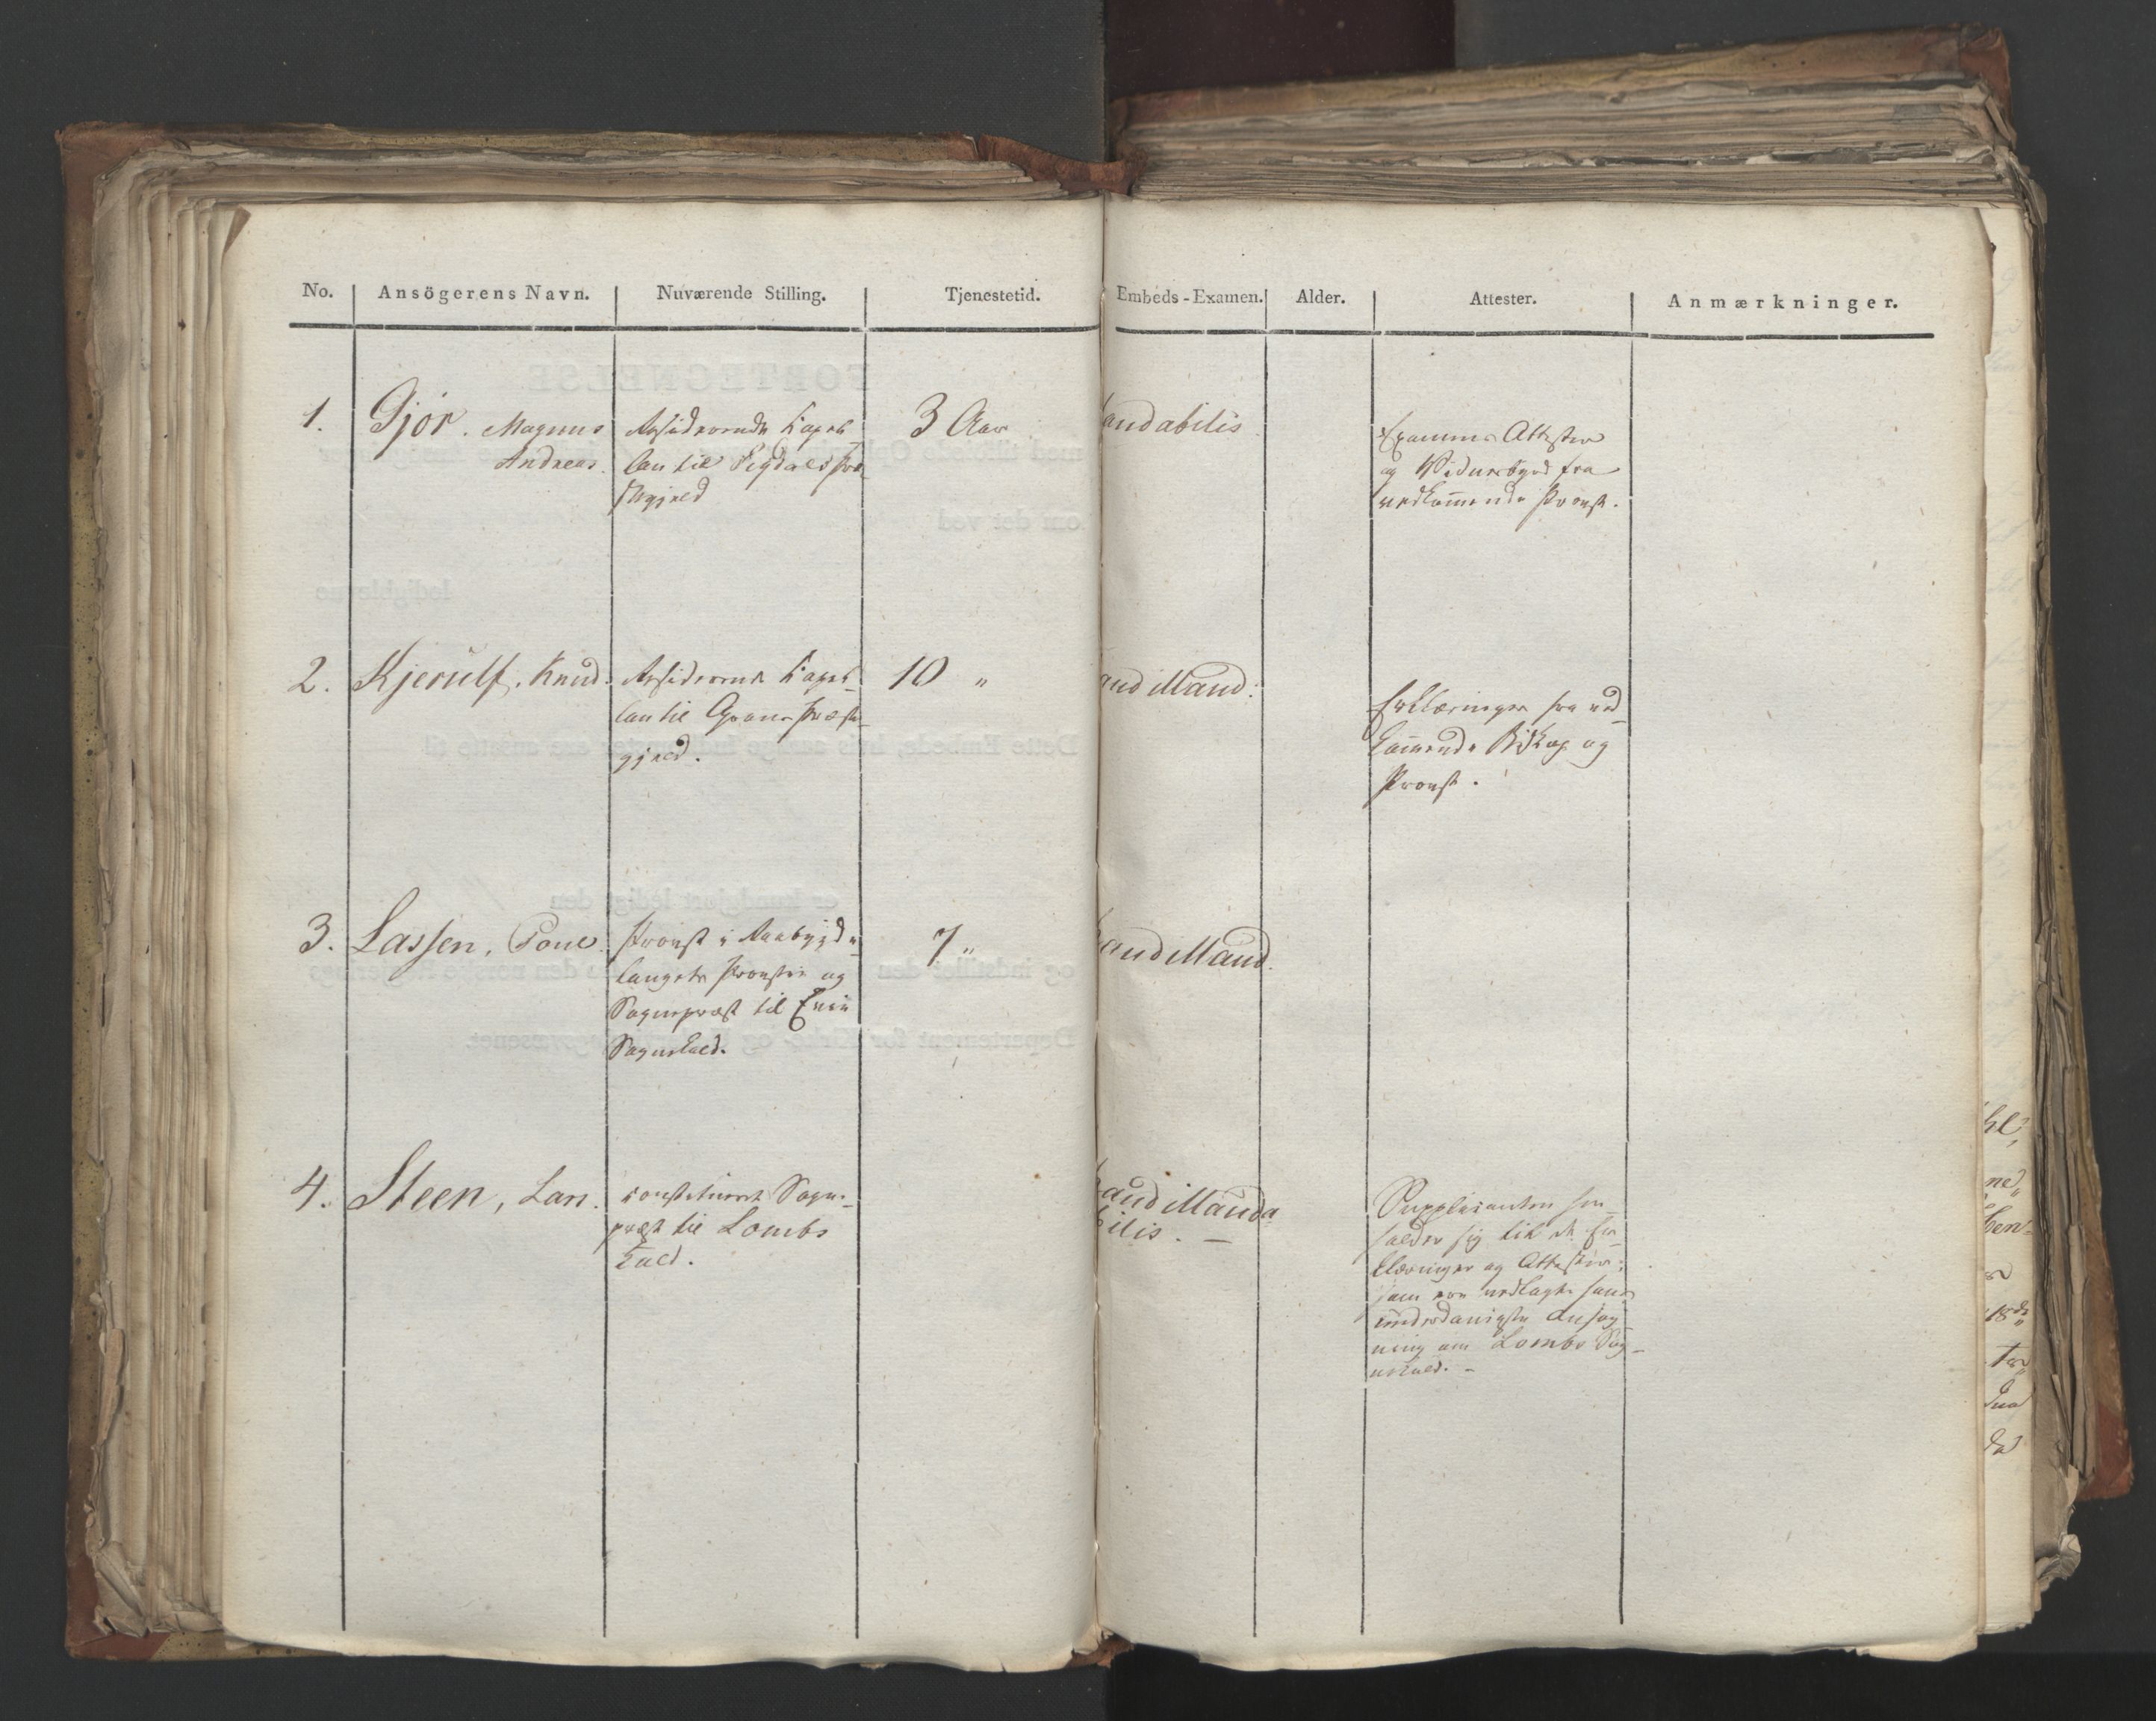 No. Ansögerens Navn. Nuværende Stilling. Tjenestetid. Embeds-Examen. Alder. Attester. Anmærkninger.
1. Gjör. Magnus
Andreas.
Residerende Capel-
lan til Sigdals Præ-
stegjeld
3 Aar
laudabilis
Examens Attester
og Vidnesbyrd fra
vedkommende Provst.
2. Kjerulf. Knud.
Residerende Capel-
lan til Grans Præste-
gjeld.
10 "
laud illaud:
Erklæringer fra ved-
kommende Biskop og
Provst.
3. Lassen, Poul.
Provst i Raabygde-
laugets Provstie og
Sognepræst til Evie
Sognekald.
7 "
laud illaud.
4. Steen, Lars.
constitueret Sogne-
præst til Lombs
Kald.
laud illauda
bilis. -
Supplicanten hen-
holder sig til de Er-
klæringer og Attester,
som ere vedlagte hans
underdanigste Ansøg-
ning om Lombs Sog-
nekald. -